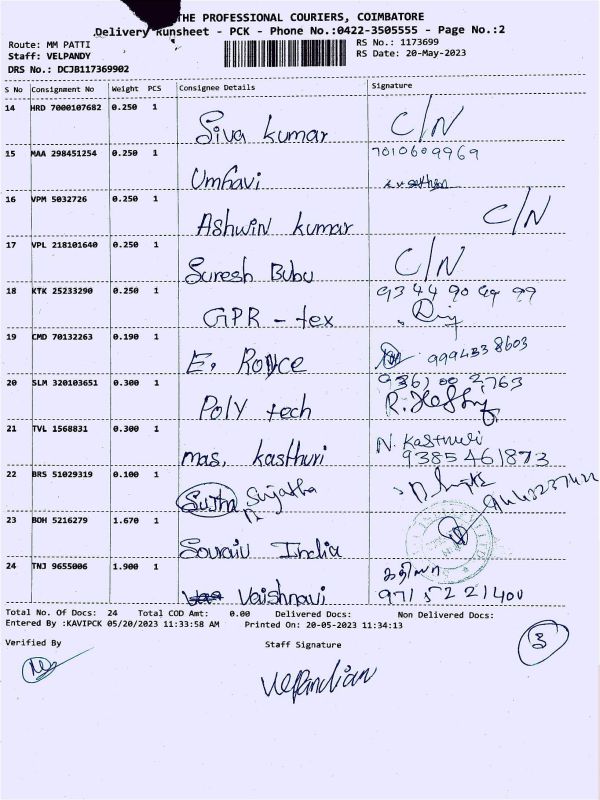 THE PROFESSIONAL COURIERS, COIMBATORE
Delivery Runsheet - PCK - Phone No.:0422-3505555 - Page No.:2
Route: MM PATTI
RS No.: 1173699
Staff: VELPANDY
RS Date: 20-May-2023
DRS No.: DCJB117369902
S No Consignment No Weight PCS Consignee Details Signature
14 HRD 7000107682 0.250 1 Siva kumar C/N
15 MAA 298451254 0.250 1 7010609969
Umhavi
16 VPM 5032726 0.250 1 Ashwin kumar C/N
17 VPL 218101640 0.250 1 Suresh Bubu C/N
18 KTK 25233290 0.250 1
GPR - tex
19 CMD 70132263 0.190 1 E. Royce 9994338603
20 SLM 320103651 0.300 1 9361 00 2763
Poly tech
21 TVL 1568831 0.300 1 N. Kasthuri
mas. kasthuri 9385461873
22 BRS 51029319 0.100 1 Sujatha
23 BOH 5216279 1.670 1
Souraiv India
24 TNJ 9655006 1.900 1
Vaishnavi 9715221400
Total No. Of Docs: 24 Total COD Amt: 0.00 Delivered Docs: Non Delivered Docs:
Entered By :KAVIPCK 05/20/2023 11:33:58 AM Printed On: 20-05-2023 11:34:13
3
Verified By Staff Signature
Velpandian